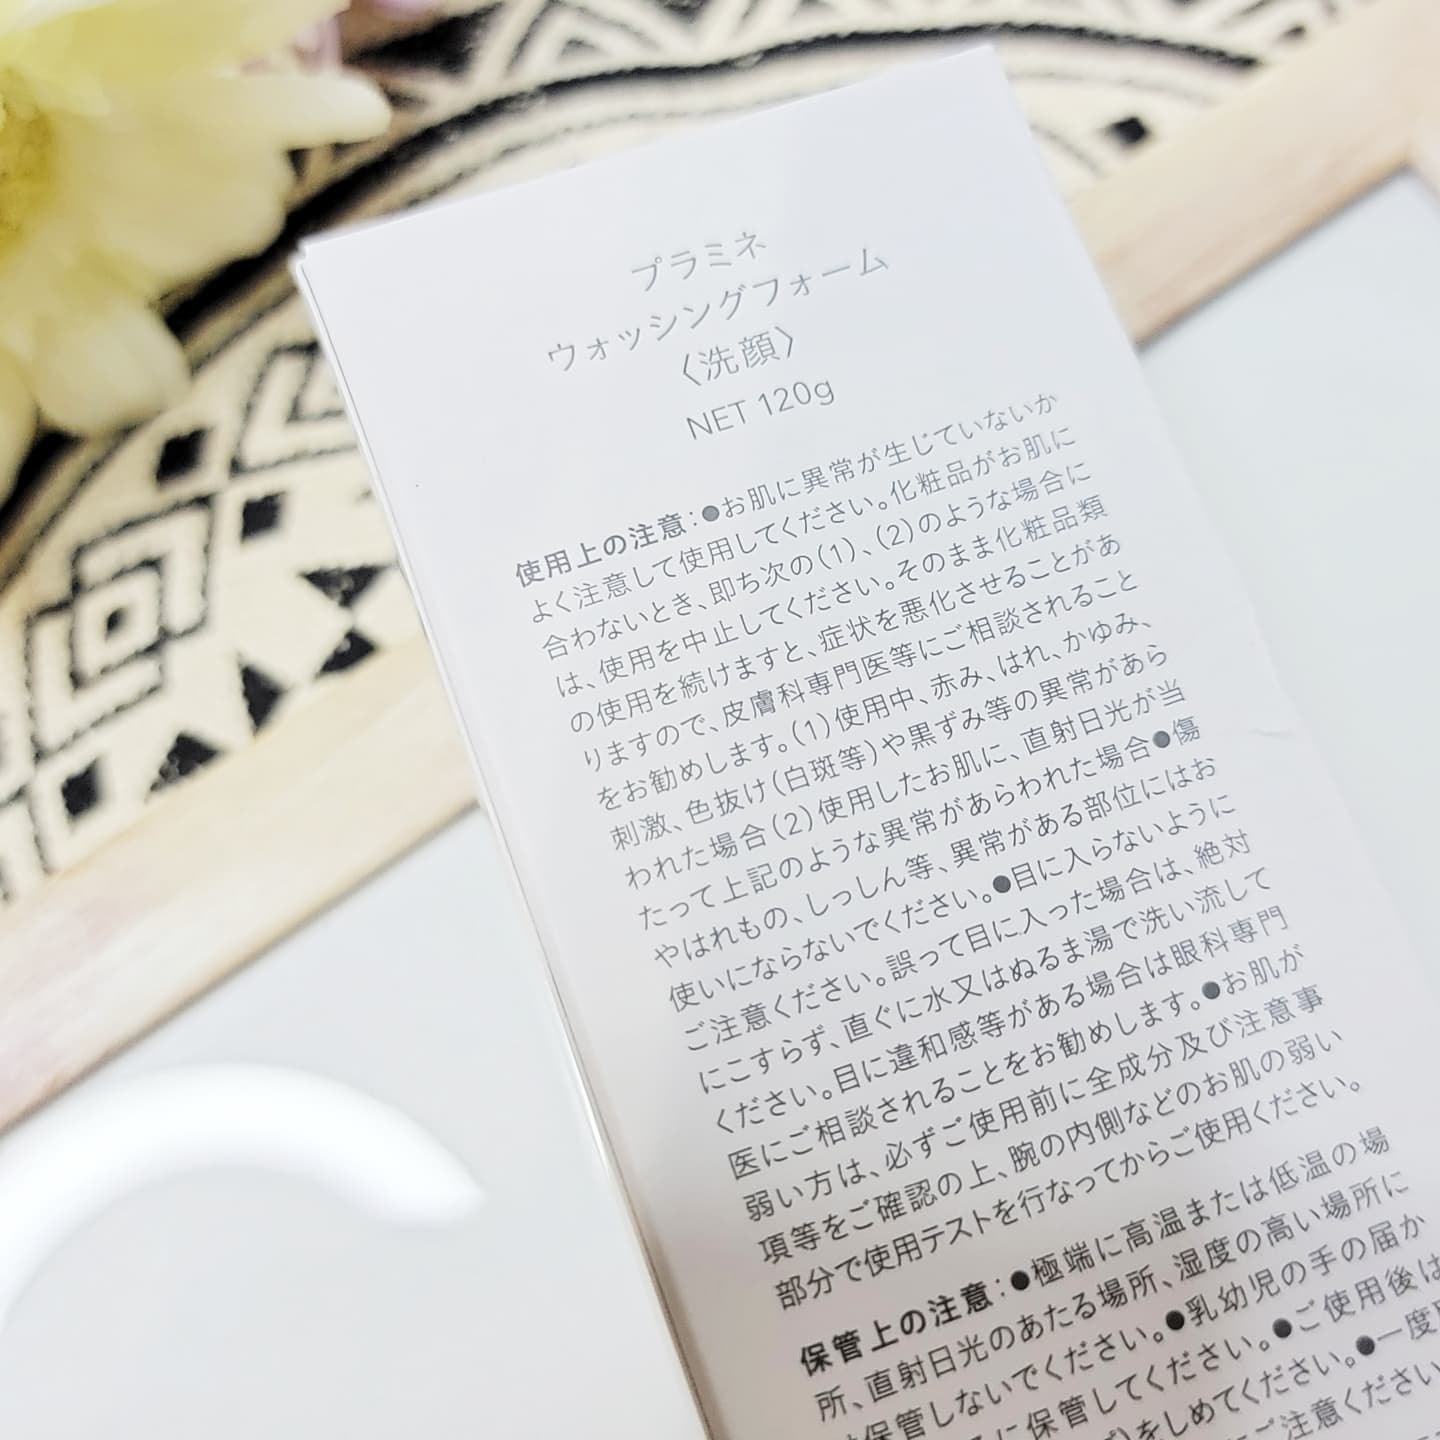 プラミネ
ウォッシングフォーム
〈洗顔〉
NET 120g
使用上の注意：●お肌に異常が生じていないか
よく注意して使用してください。化粧品がお肌に
合わないとき、即ち次の（1）、（2）のような場合に
は、使用を中止してください。そのまま化粧品類
の使用を続けますと、症状を悪化させることがあ
りますので、皮膚科専門医等にご相談されること
をお勧めします。（1）使用中、赤み、はれ、かゆみ、
刺激、色抜け（白斑等）や黒ずみ等の異常があら
われた場合（2）使用したお肌に、直射日光が当
たって上記のような異常があらわれた場合●傷
やはれもの、しっしん等、異常がある部位にはお
使いにならないでください。●目に入らないように
ご注意ください。誤って目に入った場合は、絶対
にこすらず、直ぐに水又はぬるま湯で洗い流して
ください。目に違和感等がある場合は眼科専門
医にご相談されることをお勧めします。●お肌が
弱い方は、必ずご使用前に全成分及び注意事
項等をご確認の上、腕の内側などのお肌の弱い
部分で使用テストを行なってからご使用ください。
保管上の注意：●極端に高温または低温の場
所、直射日光のあたる場所、湿度の高い場所に
保管しないでください。●乳幼児の手の届か
に保管してください。●ご使用後は
をしめてください。●一度
ご注意ください